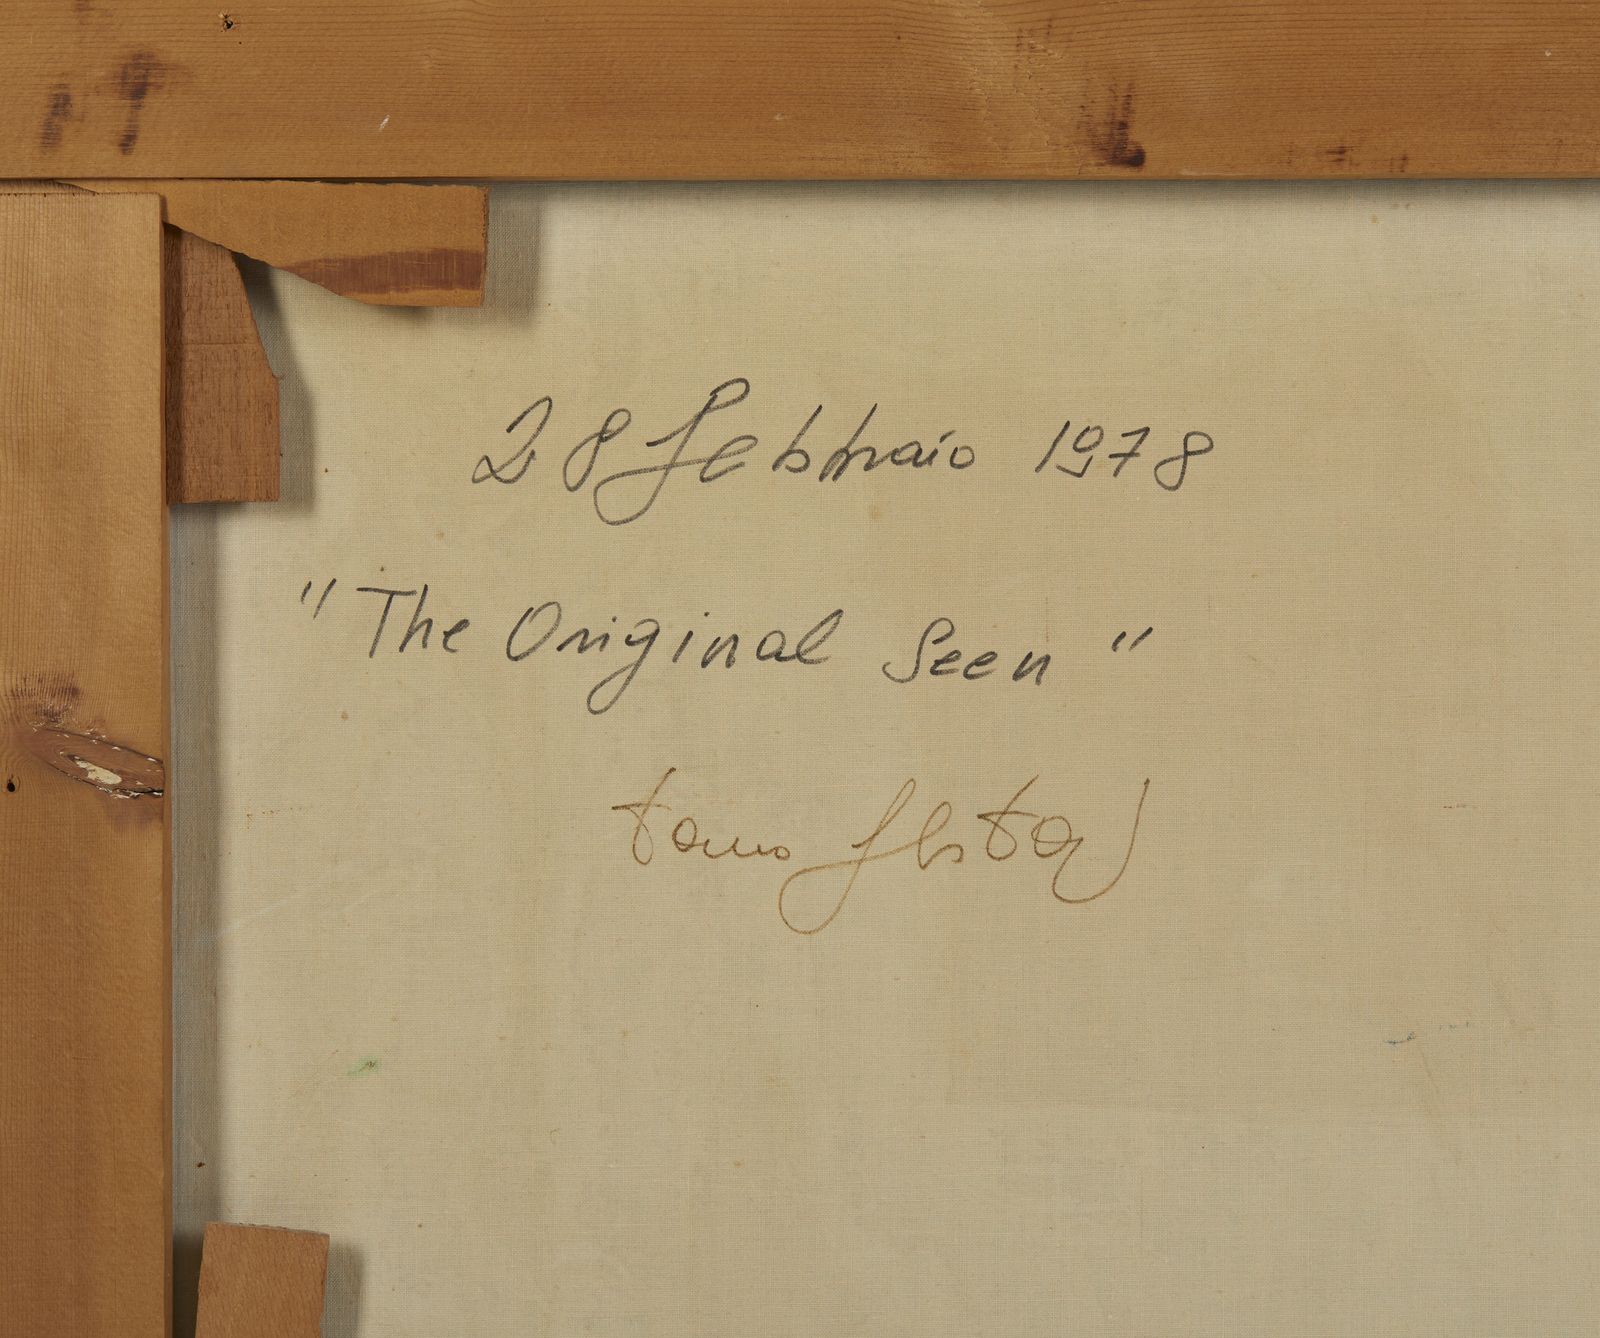 28 febbraio 1978
"The Original Seen"
tano festa